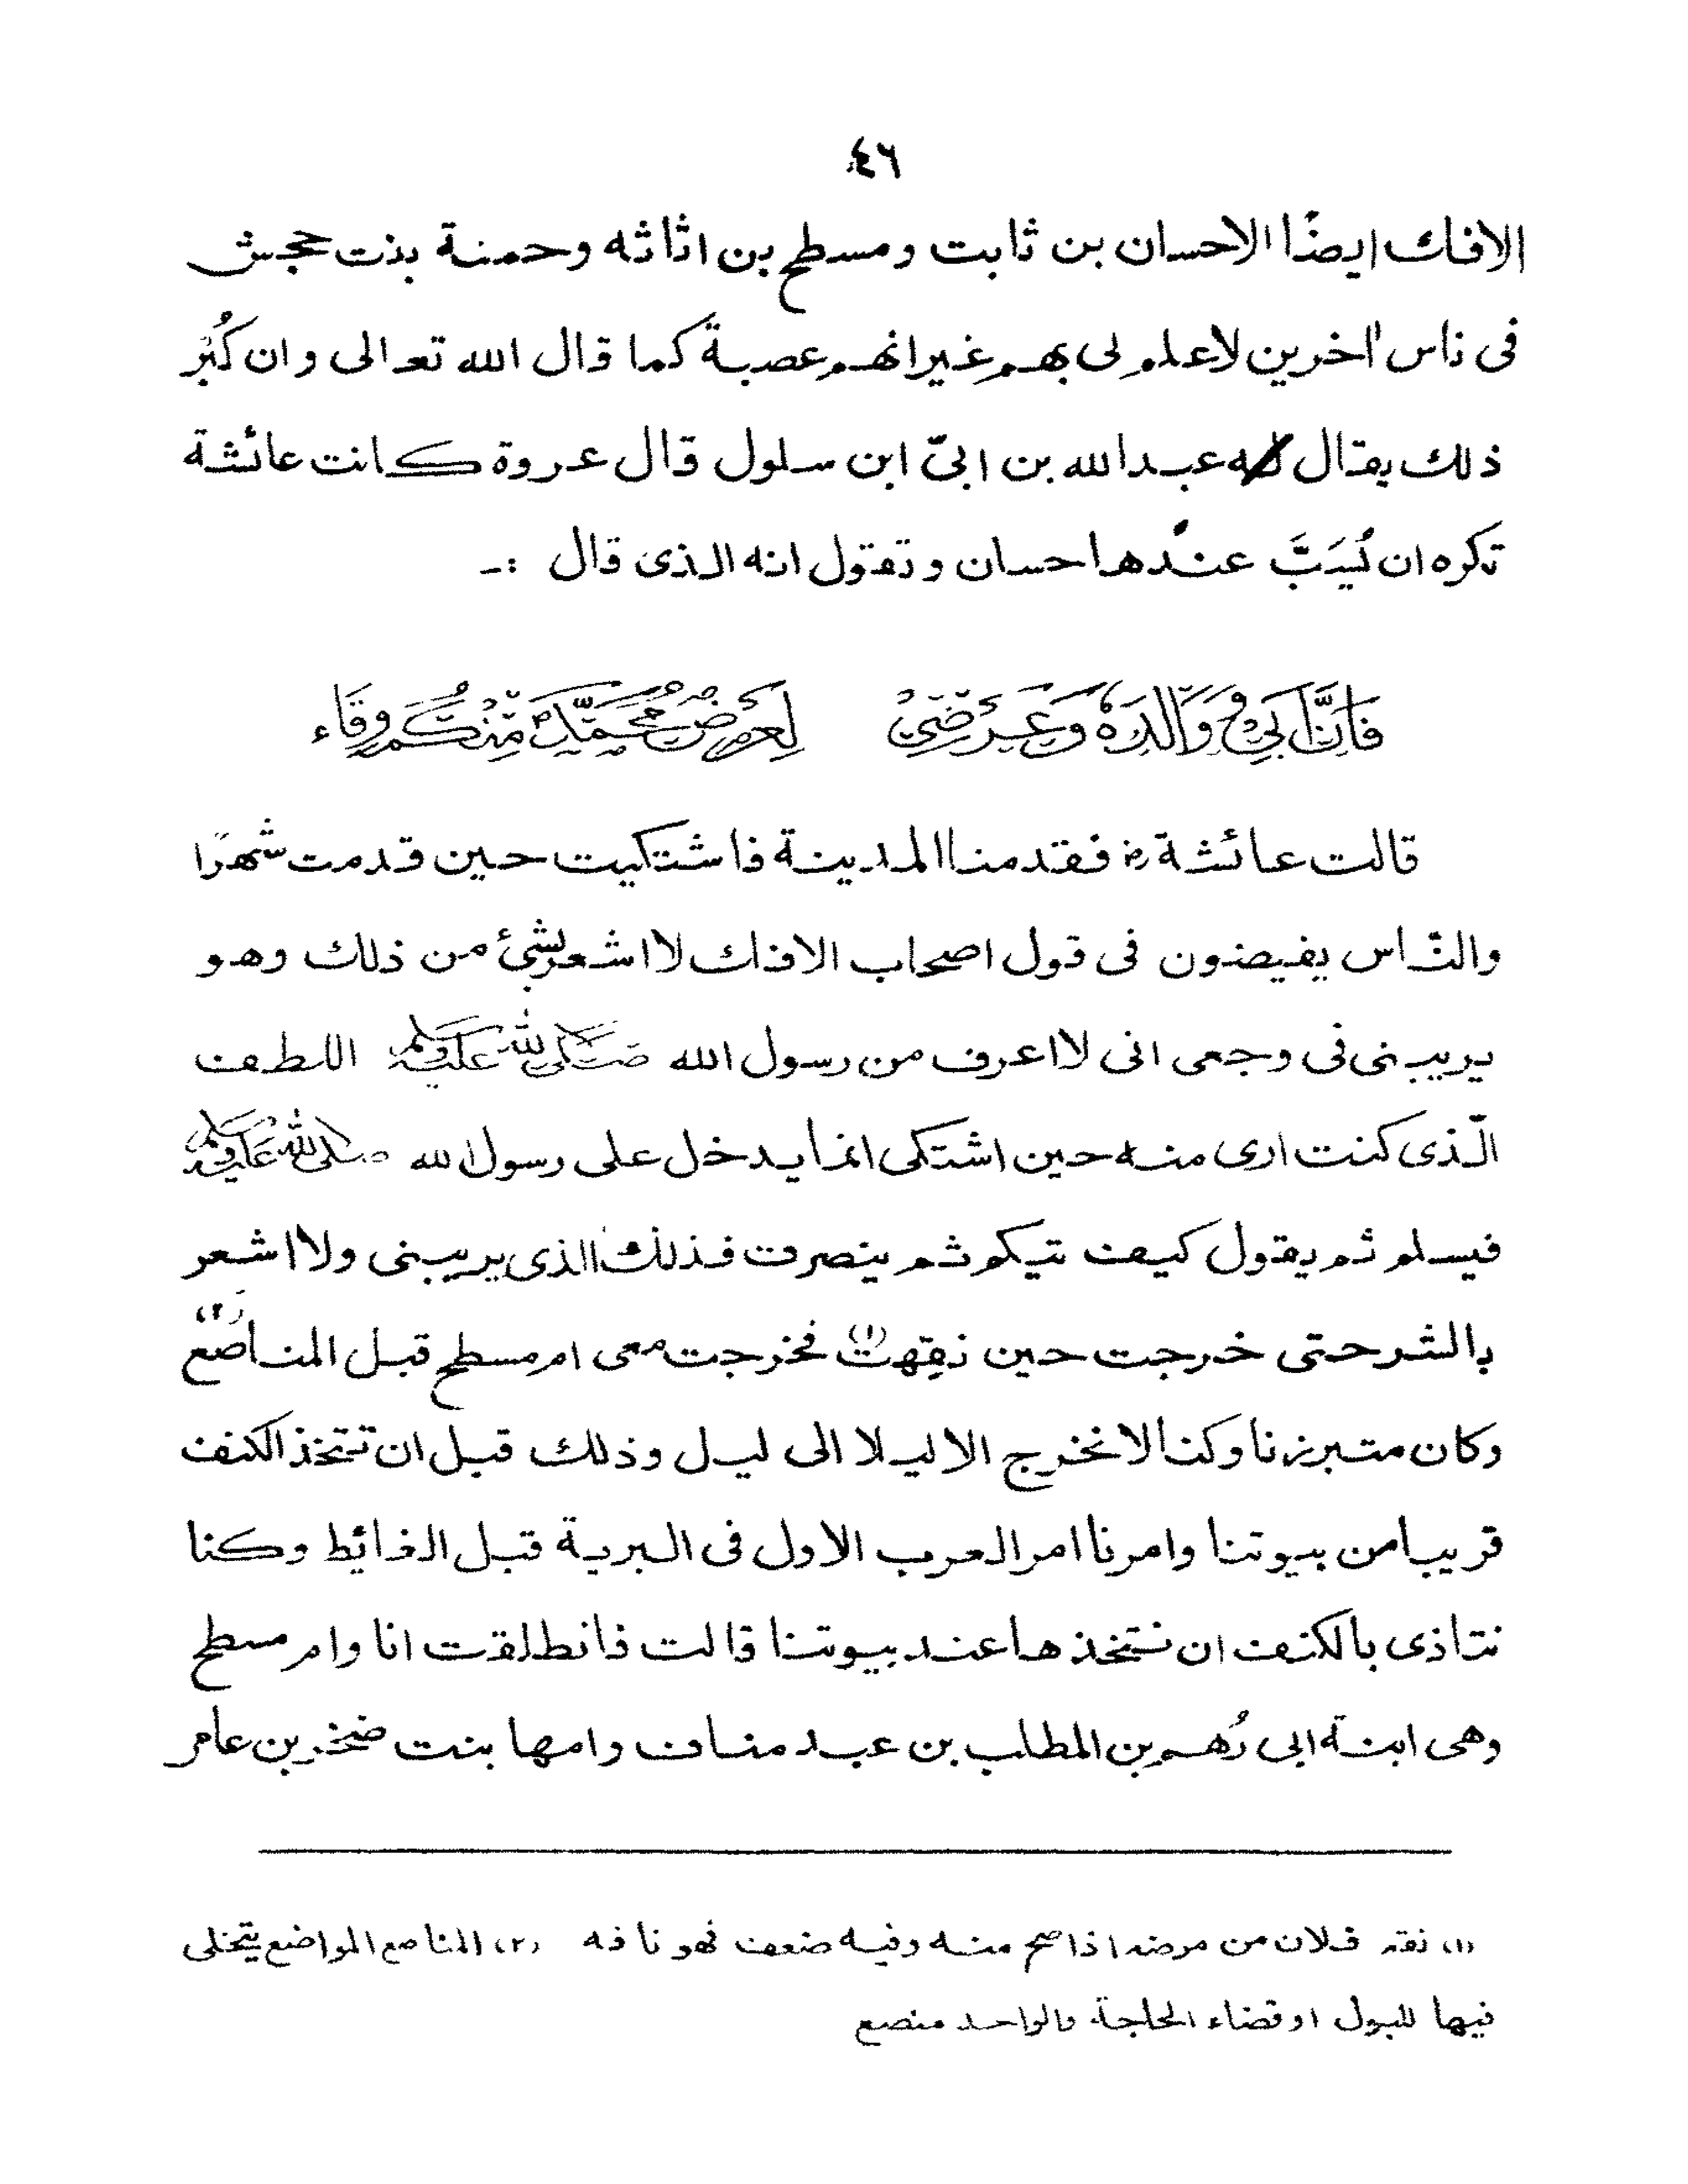 ٤٦
الافك ايضًا الاحسان بن ثابت ومسطح بن اثاثه وحمنة بنت حجش
فى ناس اٰخرين لاعلم لى بهم غير انهم عصبة كما قال الله تعالى وان كُبْر
ذلك يقال له عبدالله بن ابىّ ابن سلول قال عروة كانت عائشة
تكره ان يُسَبَّ عندها حسان وتقول انه الذى قال :-
فَاِنَّ اَبِيْ وَوَالِدَهٗ وَعِرْضِيْ لِعِرْضِ مُحَمَّدٍ مِّنْكُمْ وِقَاء
قالت عائشة رض فقدمنا المدينة فاشتكيت حين قدمت شهرًا
والنّاس يفيضون فى قول اصحاب الافك لا اشعر بشئ من ذلك وهو
يريبنى فى وجعى انى لا اعرف من رسول الله صلى الله عليه وسلم اللطف
الّذى كنت ارى منه حين اشتكى انما يدخل على رسول الله صلى الله عليه وسلم
فيسلم ثم يقول كيف تيكم ثم ينصرف فذلك الذى يريبنى ولا اشعر
بالشر حتى خرجت حين نقِهت (١) فخرجت معى ام مسطح قبل المناصع (٢)
وكان متبرزنا وكنا لا نخرج الا ليلا الى ليل وذلك قبل ان تتخذ الكنف
قريبا من بيوتنا وامرنا امر العرب الاول فى البرية قبل الغائط وكنا
نتاذى بالكنف ان نتخذها عند بيوتنا قالت فانطلقت انا وام مسطح
وهى ابنة ابى رُهم بن المطلب بن عبد مناف وامها بنت ضخر بن عامر
(١) نقه فلان من مرضه اذا صح منه وفيه ضعف فهو نافه (٢) المناصع المواضع يتخلى
فيها للبول اوقضاء الحاجة والواحد منصع